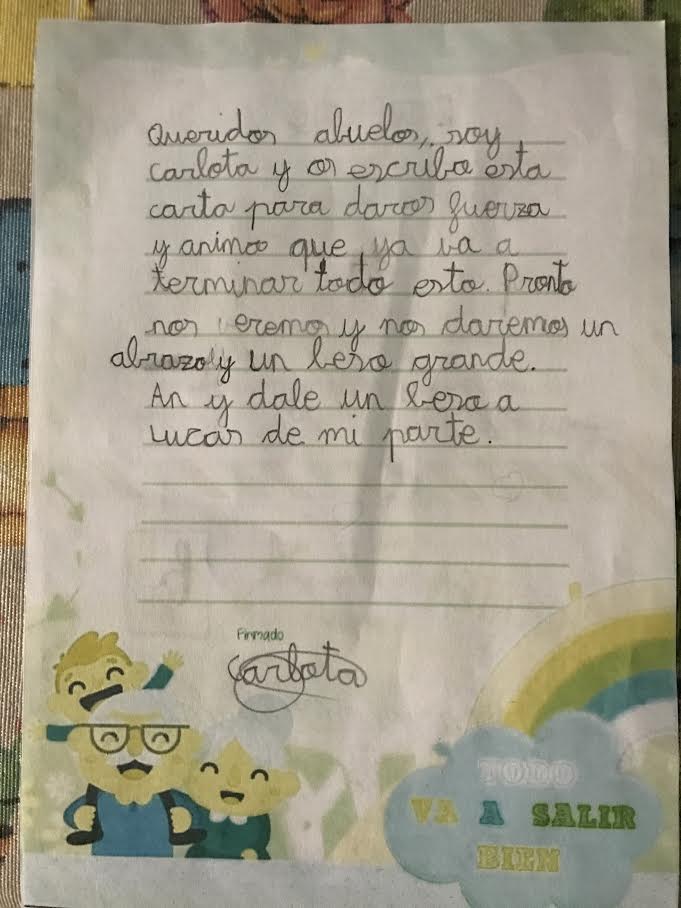 Queridos abuelos, soy
carlota y os escribo esta
carta para daros fuerza
y animo que ya va a
terminar todo esto. Pronto
nos veremos y nos daremos un
abrazo y un beso grande.
An y dale un beso a
Lucas de mi parte.
Firmado
Carlota
TODO
VA A SALIR
BIEN